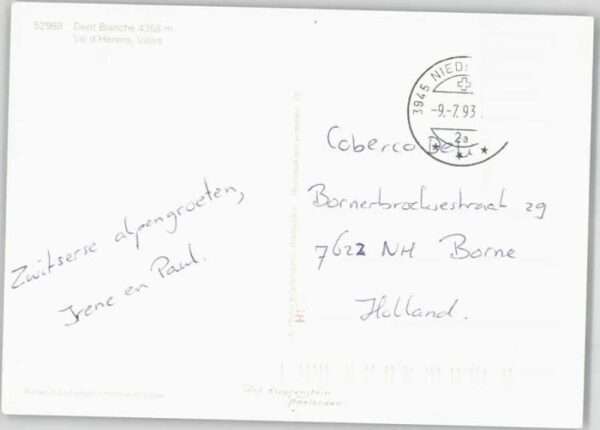 52968 Dent Blanche 4358 m
Val d'Hérens, Valais
3945 NIED
-9.-7.93
2a
Coberco
Bornerbroeksestraat 29
7622 NH Borne
Holland.
Zwitserse alpengroeten,
Irene en Paul.